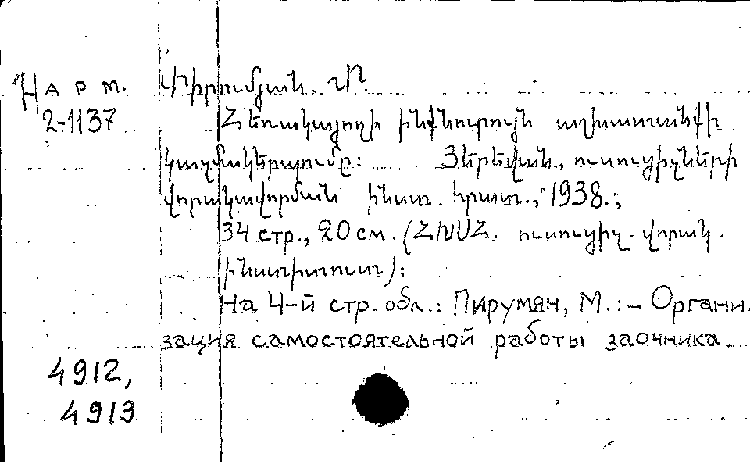 На рм. Փիրումյան Մ
2-1137 Հեռակայողի ինքնուրույն աշխատանքի
կազմակերպումը: Յերեվան, ուսուցիչների
վորակավորման ինստ. հրատ., 1938.;
34 стр., 20 см. (ՀԽՍՀ. ուսուցիչ. վորակ.
ինստիտուտ):
На 4-й стр. обл.: Пирумян, М.:– Органи-
зация самостоятельной работы заочника
4912,
4913